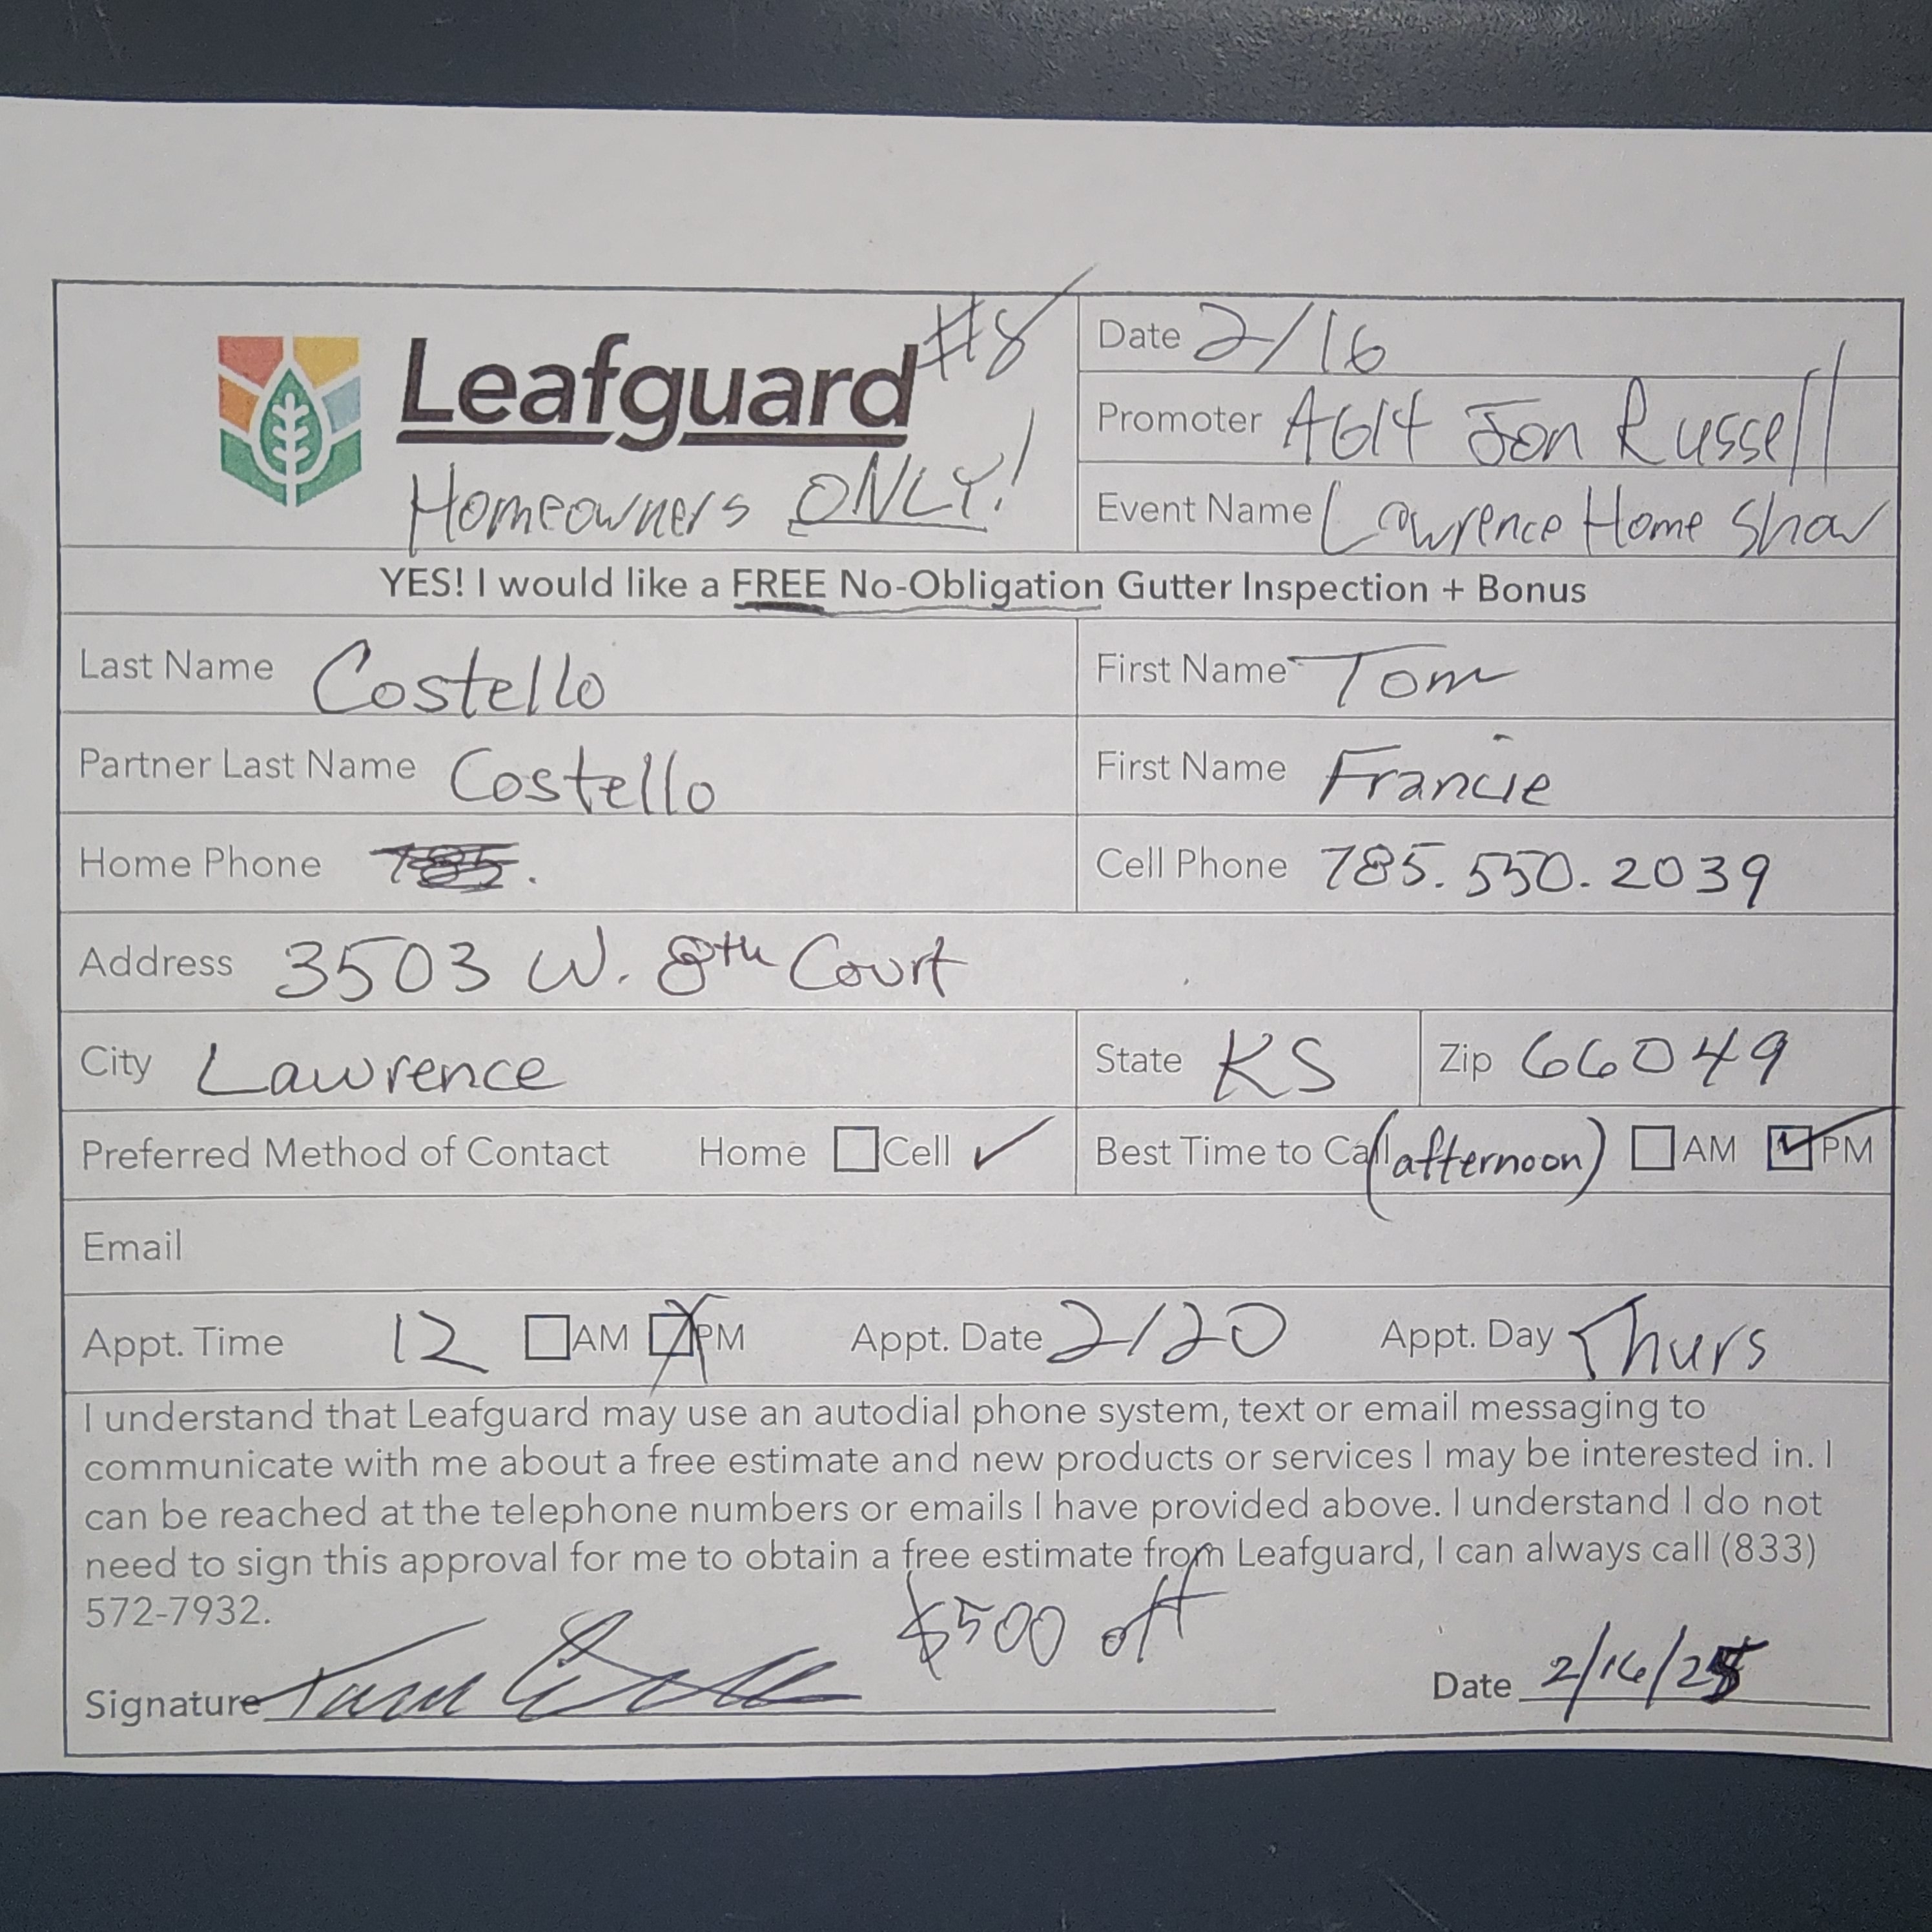 Leafguard #8
Homeowners ONLY!
Date 2/16
Promoter A614 Jon Russell
Event Name Lawrence Home Show
YES! I would like a FREE No-Obligation Gutter Inspection + Bonus
Last Name Costello First Name Tom
Partner Last Name Costello First Name Francie
Home Phone 785. Cell Phone 785.550.2039
Address 3503 W. 8th Court
City Lawrence State KS Zip 66049
Preferred Method of Contact Home Cell Best Time to Call (afternoon) AM PM
Email
Appt. Time 12 AM PM Appt. Date 2/20 Appt. Day Thurs
I understand that Leafguard may use an autodial phone system, text or email messaging to
communicate with me about a free estimate and new products or services I may be interested in. I
can be reached at the telephone numbers or emails I have provided above. I understand I do not
need to sign this approval for me to obtain a free estimate from Leafguard, I can always call (833)
572-7932.
$500 off
Signature Tom Costello Date 2/16/25